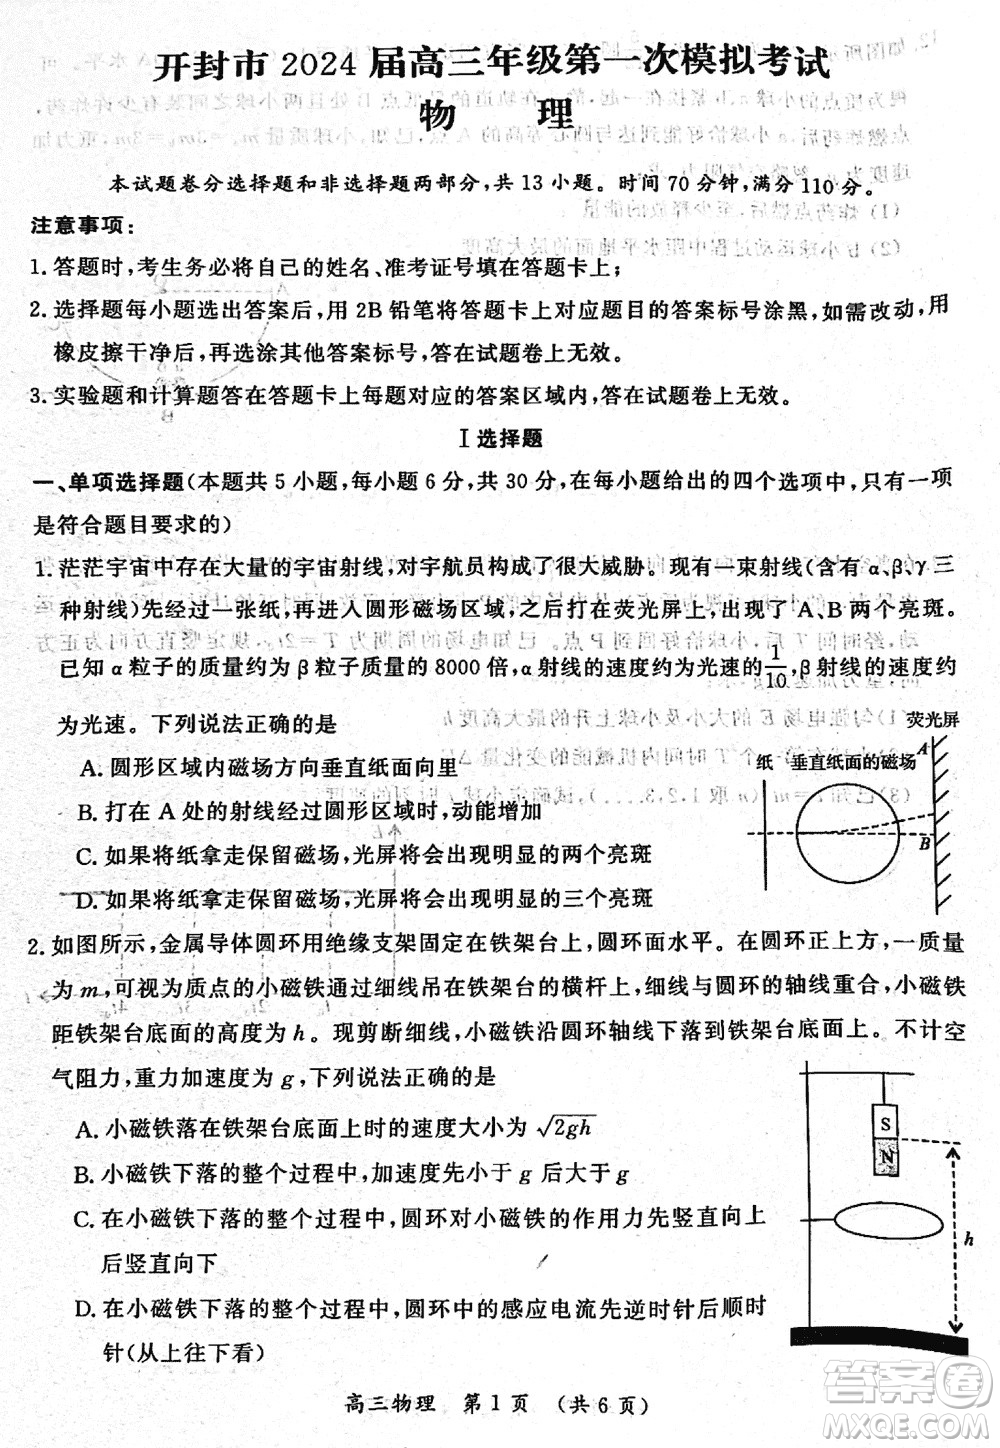 开封市 2024 届高三年级第一次模拟考试
物　理
本试题卷分选择题和非选择题两部分,共 13 小题。时间 70 分钟,满分 110 分。
注意事项:
1. 答题时,考生务必将自己的姓名、准考证号填在答题卡上;
2. 选择题每小题选出答案后,用 2B 铅笔将答题卡上对应题目的答案标号涂黑,如需改动,用
橡皮擦干净后,再选涂其他答案标号,答在试题卷上无效。
3. 实验题和计算题答在答题卡上每题对应的答案区域内,答在试题卷上无效。
Ⅰ 选择题
一、单项选择题(本题共 5 小题,每小题 6 分,共 30 分,在每小题给出的四个选项中,只有一项
是符合题目要求的)
1. 茫茫宇宙中存在大量的宇宙射线,对宇航员构成了很大威胁。现有一束射线(含有 α、β、γ 三
种射线)先经过一张纸,再进入圆形磁场区域,之后打在荧光屏上,出现了 A、B 两个亮斑。
已知 α 粒子的质量约为 β 粒子质量的 8000 倍,α 射线的速度约为光速的 1/10,β 射线的速度约
为光速。下列说法正确的是
A. 圆形区域内磁场方向垂直纸面向里
B. 打在 A 处的射线经过圆形区域时,动能增加
C. 如果将纸拿走保留磁场,光屏将会出现明显的两个亮斑
D. 如果将纸拿走保留磁场,光屏将会出现明显的三个亮斑
荧光屏
纸 垂直纸面的磁场
A
B
2. 如图所示,金属导体圆环用绝缘支架固定在铁架台上,圆环面水平。在圆环正上方,一质量
为 m,可视为质点的小磁铁通过细线吊在铁架台的横杆上,细线与圆环的轴线重合,小磁铁
距铁架台底面的高度为 h。现剪断细线,小磁铁沿圆环轴线下落到铁架台底面上。不计空
气阻力,重力加速度为 g,下列说法正确的是
A. 小磁铁落在铁架台底面上时的速度大小为 √2gh
B. 小磁铁下落的整个过程中,加速度先小于 g 后大于 g
C. 在小磁铁下落的整个过程中,圆环对小磁铁的作用力先竖直向上
后竖直向下
D. 在小磁铁下落的整个过程中,圆环中的感应电流先逆时针后顺时
针(从上往下看)
S
N
h
高三物理　第 1 页　(共 6 页)
答案圈
MXQE.COM